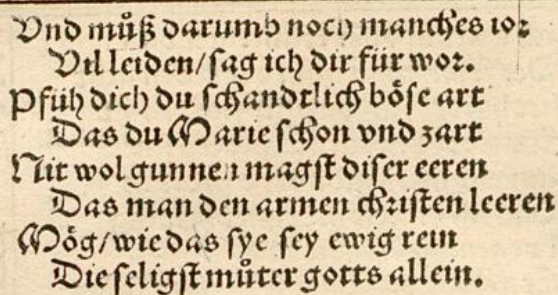 Vnd můß darumb noch manches ior
Vil leiden/sag ich dir für wor.
Pfüh dich du schandtlich böse art
Das du Marie schon vnd zart
Nit wol gunnen magst diser eeren
Das man den armen christen leeren
Mög/wie das sye sey ewig rein
Die seligst můter gotts allein.